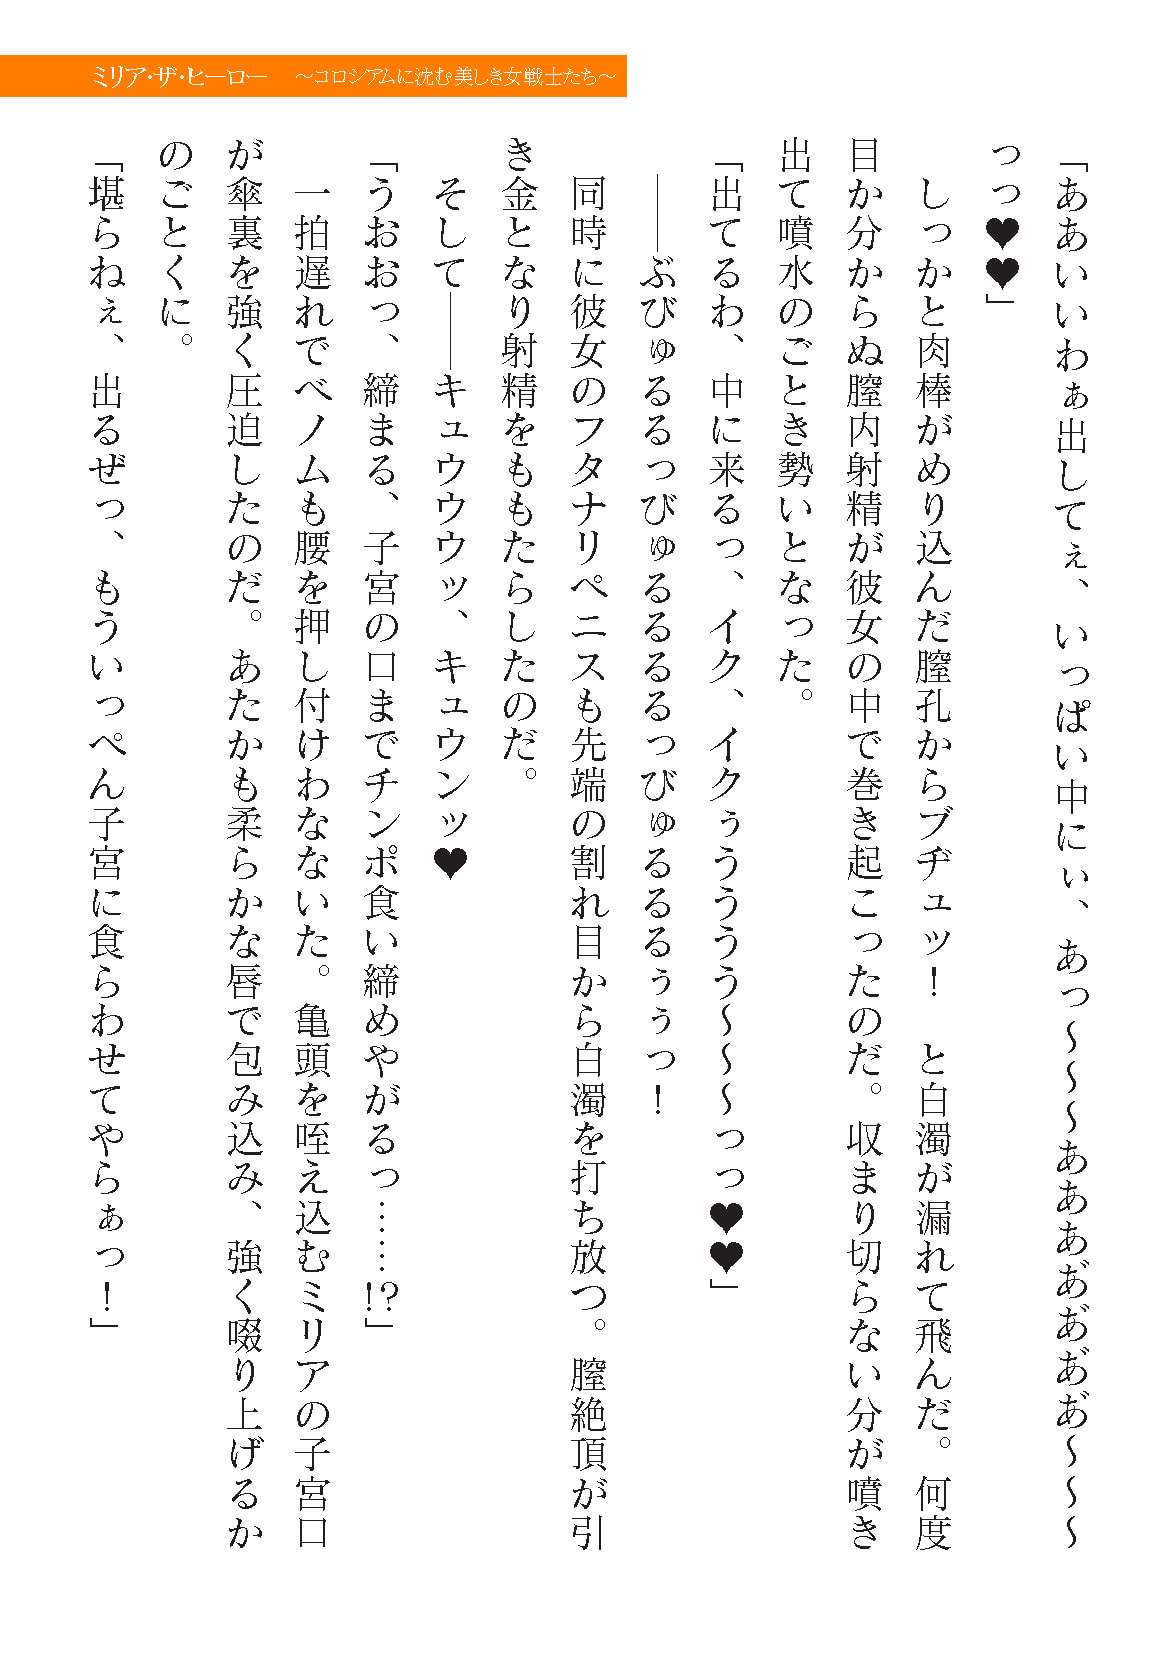 ミリア・ザ・ヒーロー　～コロシアムに沈む美しき女戦士たち～
「ああいいわぁ出してぇ、いっぱい中にぃ、あっ～～～あああああ゙あ゙あ゙～～～
っっ♥♥」
　しっかと肉棒がめり込んだ膣孔からブヂュッ！　と白濁が漏れて飛んだ。何度
目か分からぬ膣内射精が彼女の中で巻き起こったのだ。収まり切らない分が噴き
出て噴水のごとき勢いとなった。
「出てるわ、中に来るっ、イク、イクぅうううう～～～っっ♥♥」
　――ぶびゅるるっびゅるるるるっびゅるるるぅぅっ！
　同時に彼女のフタナリペニスも先端の割れ目から白濁を打ち放つ。膣絶頂が引
き金となり射精をももたらしたのだ。
　そして――キュウウウッ、キュウンッ♥
「うおおっ、締まる、子宮の口までチンポ食い締めやがるっ……!?」
　一拍遅れでベノムも腰を押し付けわなないた。亀頭を咥え込むミリアの子宮口
が傘裏を強く圧迫したのだ。あたかも柔らかな唇で包み込み、強く啜り上げるか
のごとくに。
「堪らねぇ、出るぜっ、もういっぺん子宮に食らわせてやらぁっ！」